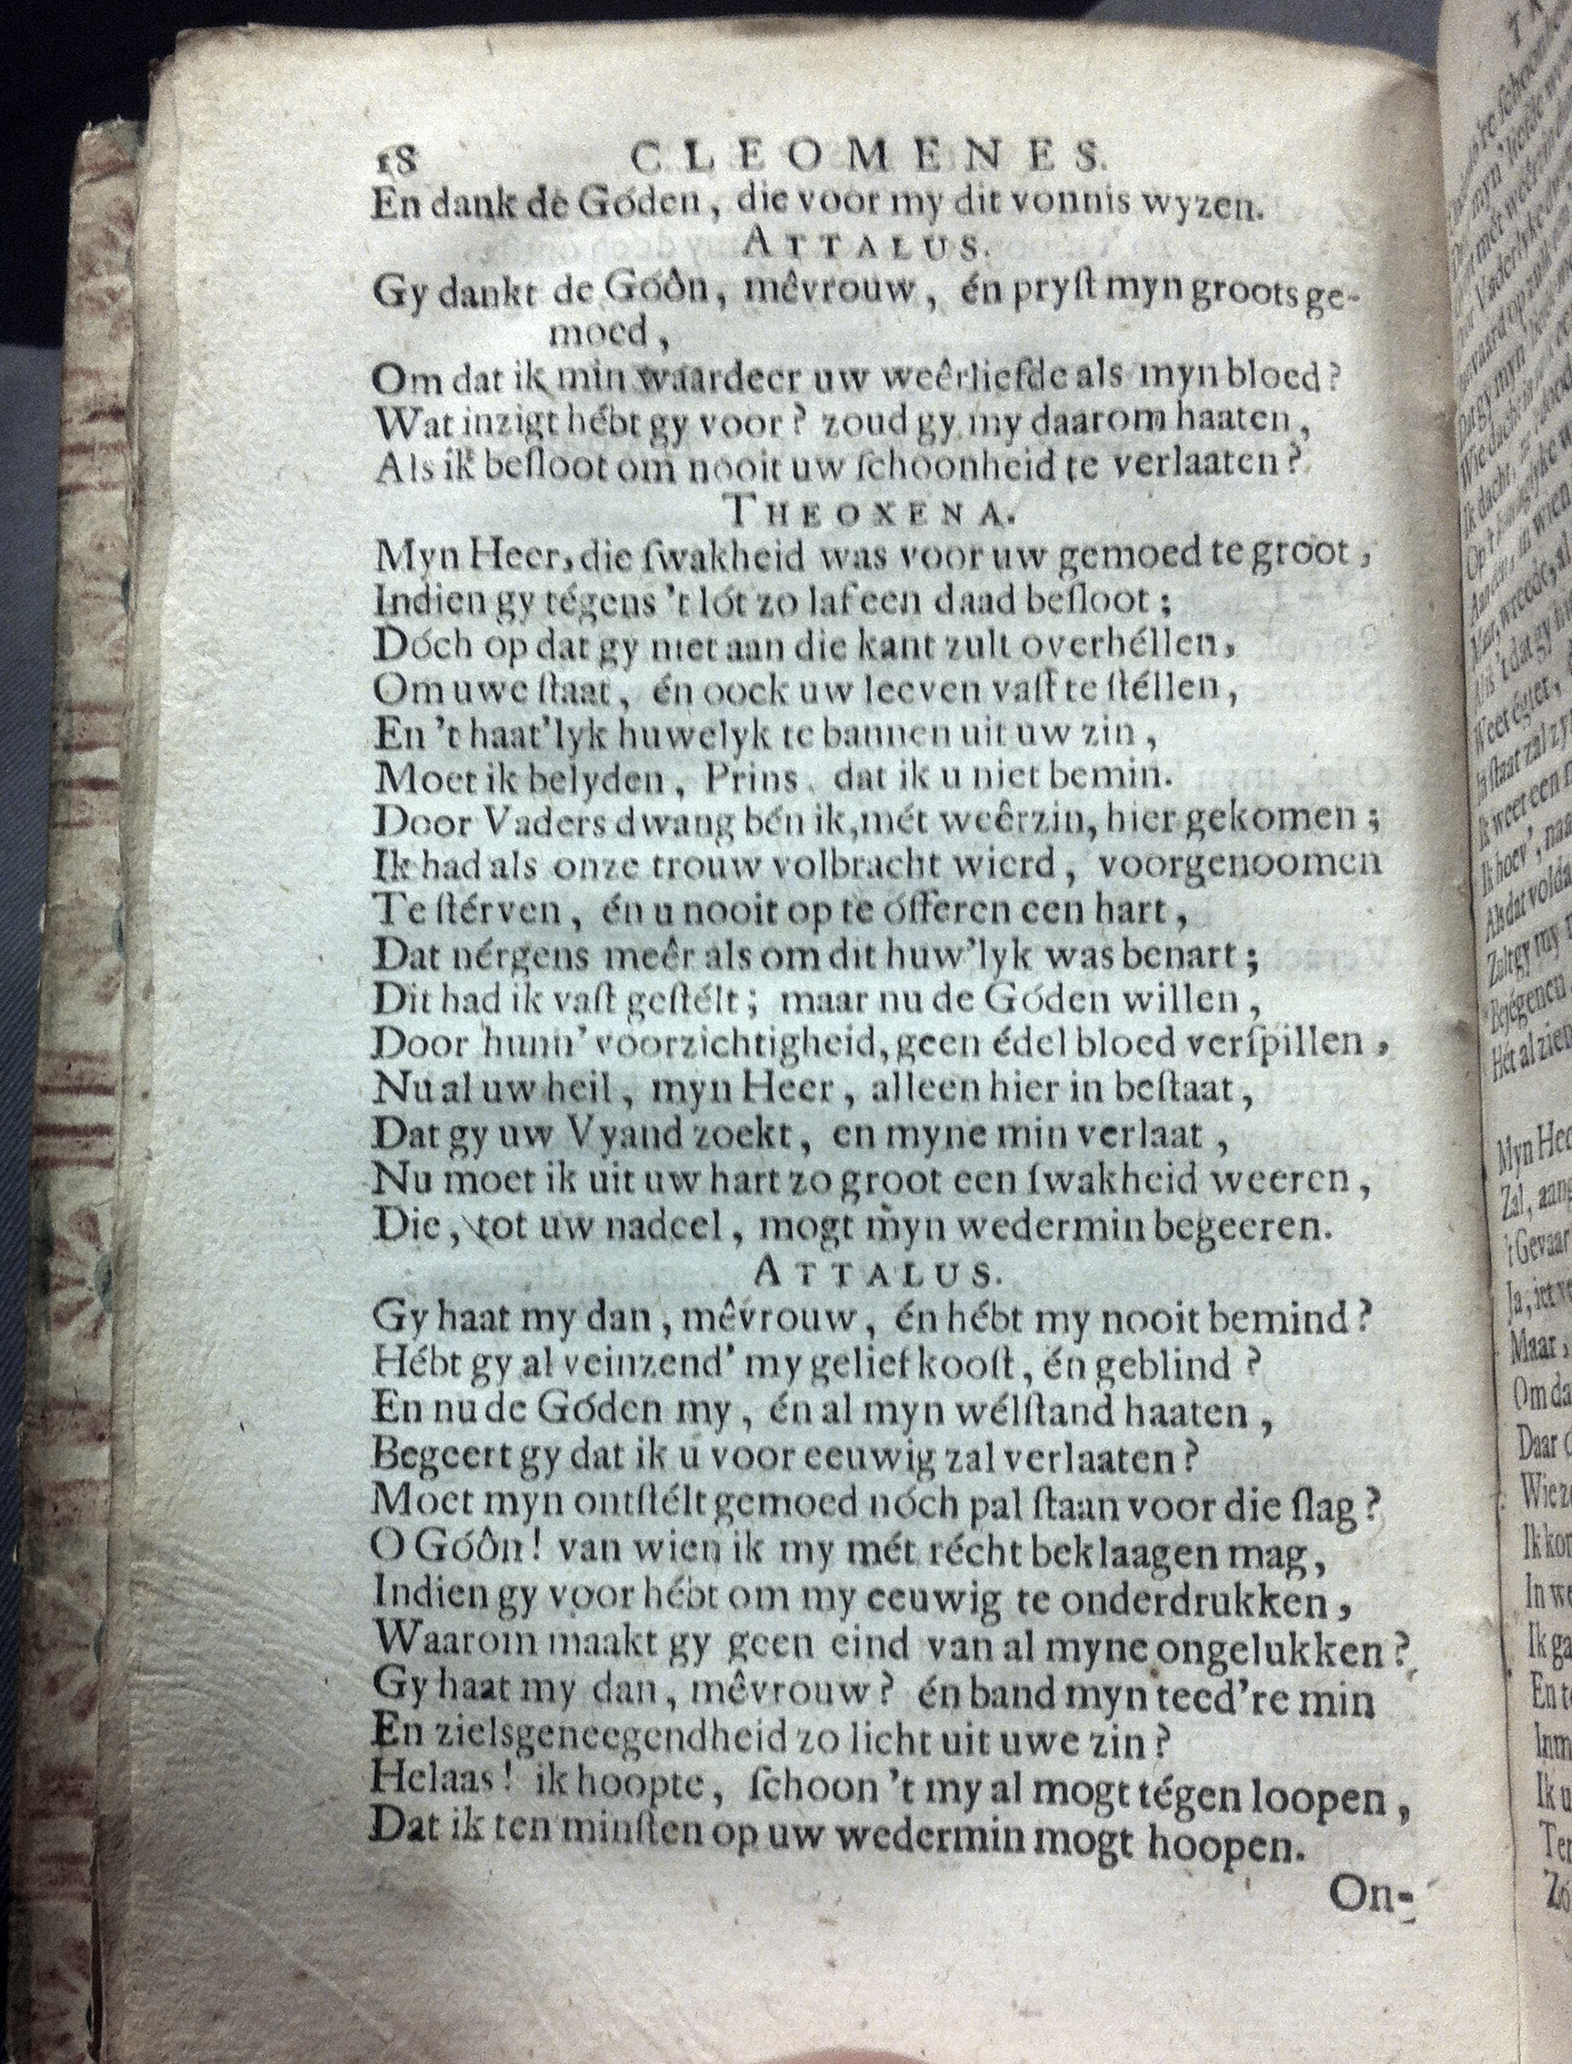 18 CLEOMENES.
En dank de Góden, die voor my dit vonnis wyzen.
ATTALUS.
Gy dankt de Góôn, mêvrouw, én pryſt myn groots ge-
moed,
Om dat ik min waardeer uw weêrliefde als myn bloed?
Wat inzigt hébt gy voor? zoud gy my daarom haaten,
Als ik beſloot om nooit uw ſchoonheid te verlaaten?
THEOXENA.
Myn Heer, die ſwakheid was voor uw gemoed te groot,
Indien gy tégens 't lót zo laf een daad beſloot;
Dóch op dat gy niet aan die kant zult overhéllen,
Om uwe ſtaat, én oock uw leeven vaſt te ſtéllen,
En 't haat'lyk huwelyk te bannen uit uw zin,
Moet ik belyden, Prins, dat ik u niet bemin.
Door Vaders dwang bén ik, mét weêrzin, hier gekomen;
Ik had als onze trouw volbracht wierd, voorgenoomen
Te ſtérven, én u nooit op te ófferen een hart,
Dat nérgens meêr als om dit huw'lyk was benart;
Dit had ik vaſt geſtélt; maar nu de Góden willen,
Door hunn' voorzichtigheid, geen édel bloed verſpillen,
Nu al uw heil, myn Heer, alleen hier in beſtaat,
Dat gy uw Vyand zoekt, en myne min verlaat,
Nu moet ik uit uw hart zo groot een ſwakheid weeren,
Die, tot uw nadeel, mogt myn wedermin begeeren.
ATTALUS.
Gy haat my dan, mêvrouw, én hébt my nooit bemind?
Hébt gy al veinzend' my geliefkooſt, én geblind?
En nu de Góden my, én al myn wélſtand haaten,
Begeert gy dat ik u voor eeuwig zal verlaaten?
Moet myn ontſtélt gemoed nóch pal ſtaan voor die ſlag?
O Góôn! van wien ik my mét récht beklaagen mag,
Indien gy voor hébt om my eeuwig te onderdrukken,
Waarom maakt gy geen eind van al myne ongelukken?
Gy haat my dan, mêvrouw? én band myn teed're min
En zielsgeneegendheid zo licht uit uwe zin?
Helaas! ik hoopte, ſchoon 't my al mogt tégen loopen,
Dat ik ten minſten op uw wedermin mogt hoopen.
On-